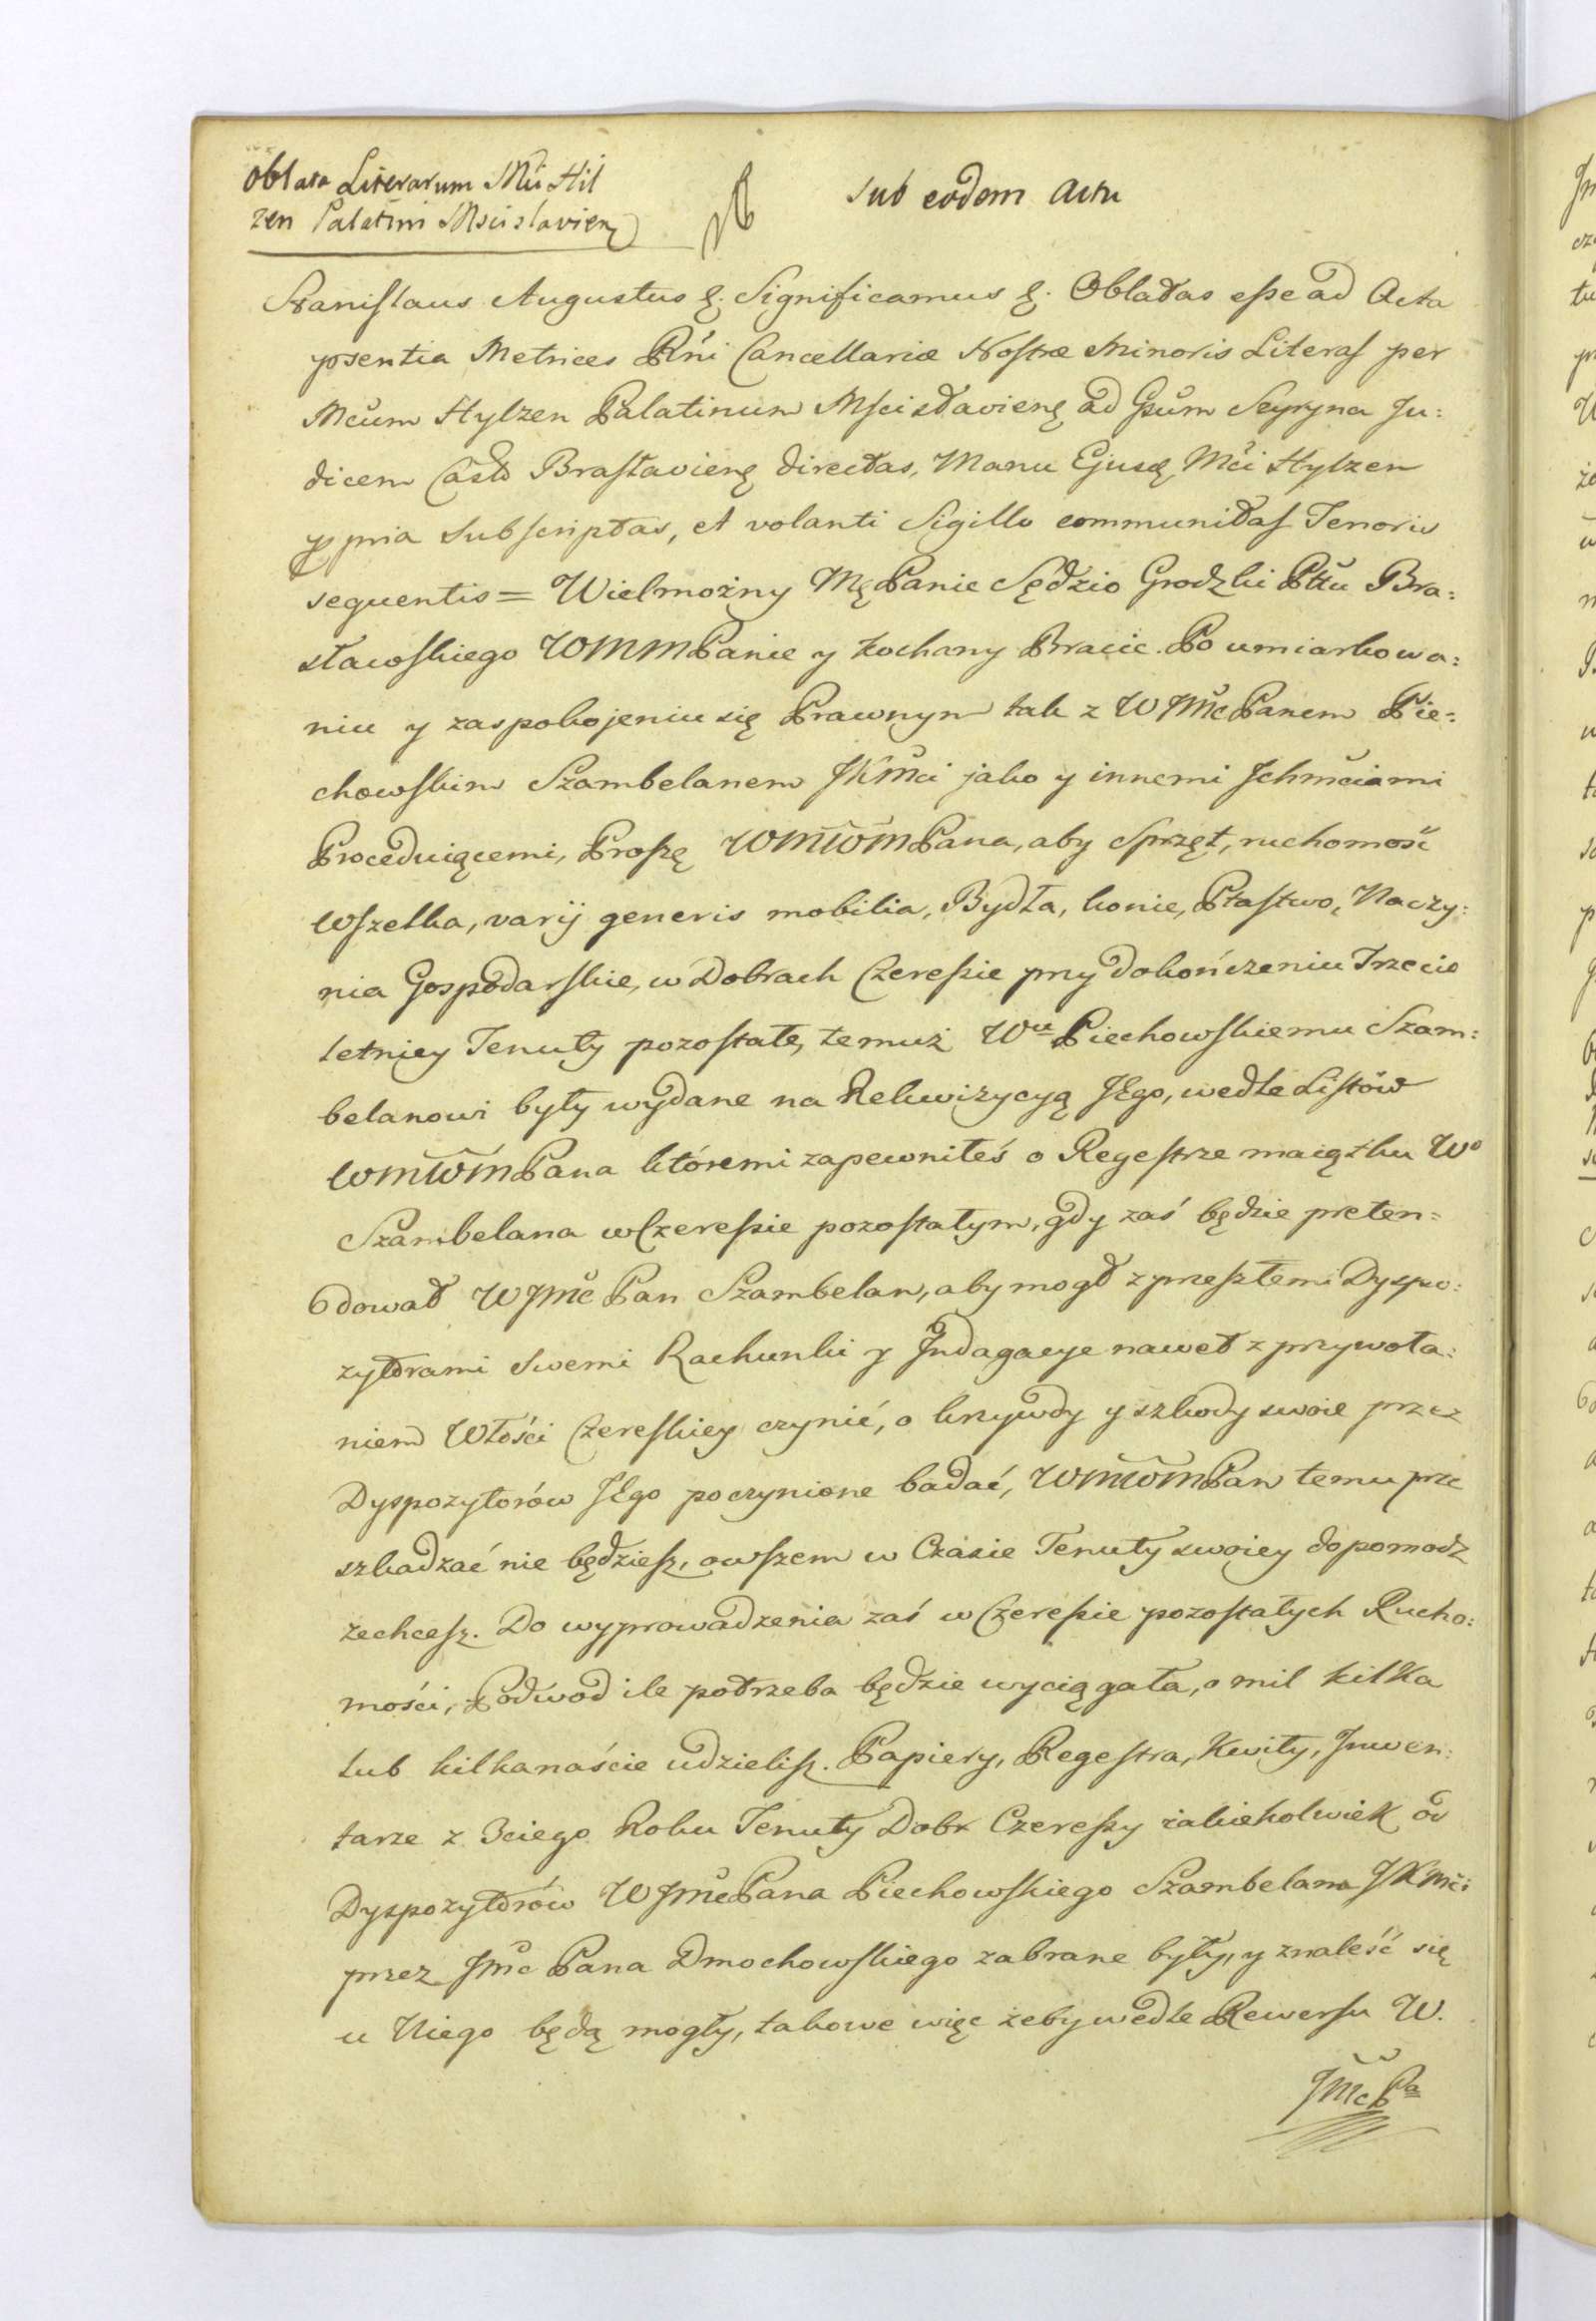 Oblata Literarum Mci Hil
zen Palatini Mscislavien̨
Sub eodem Actu
Stanislaus Augustus &. Significamus &. Oblatas esse ad Acta
psentia Metrices Rni Cancellariæ Nostræ Minoris Literas per
Mcum Hylzen Palatinum Mscisłavien̨ ad Gsum Seyryna Ju:
dicem Castr Brasłavien̨ directas, Manu Ejusd̨ Mci Hylzen
ppria Subscriptas, et volanti Sigillo communitas Tenoris
sequentis = Wielmożny Mę Panie Sędzio Grodzki Pttu Bra:
sławskiego WMM Panie y kochany Bracie. Po umiarkowa:
niu y zaspokojeniu się Prawnym tak z WJMc Panem Pie:
chowskim Szambelanem JKMci jako y innemi Ichmciami
Proceduiącemi, Proszę WMWM Pana, aby Sprzęt, ruchomość
wszelka, varij generis mobilia, Bydła, konie, Ptastwo, Naczy:
nia Gospodarskie, w Dobrach Czeressie przy dokończeniu Trzecio
letniey Tenuty pozostałe, temuż Wu Piechowskiemu Szam:
belanowi były wydane na Rekwizycyą JEgo, wedle Listów
WMWM Pana któremi zapewniłeś o Regestrze maiątku Wo
Szambelana w Czeressie pozostałym, gdy zaś będzie preten:
dował WJMc Pan Szambelan, aby mogł z przeszłemi Dyspo:
zytorami swemi Rachunki y Indagacye nawet z przywoła:
niem Włości Czereskiey czynić, o krzywdy y szkody swoie przez
Dyspozytorów JEgo poczynione badać, WMWM Pan temu prze
szkadzać nie będziesz, owszem w Czasie Tenuty swoiey dopomodz
zechcesz. Do wyprowadzenia zaś w Czeressie pozostałych Rucho:
mości, Podwod ile potrzeba będzie wyciągała, o mil kilka
lub kilkanaście udzielisz. Papiery, Regestra, Kwity, Inwen:
tarze z 3ciego Roku Tenuty Dobr Czeressy iakiekolwiek od
Dyspozytorów WJMc Pana Piechowskiego Szambelana JKMci
przez JMc Pana Dmochowskiego zabrane były, y znaleść się
u Niego będą mogły, takowe więc żeby wedle Rewersu W.
JMc Pa